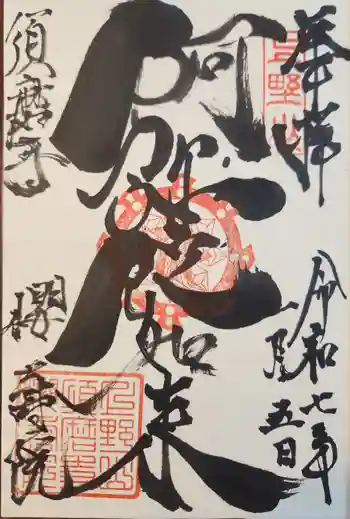 奉拝
上野山
令和七年
一月五日
阿弥陀如来
須磨寺
櫻壽院